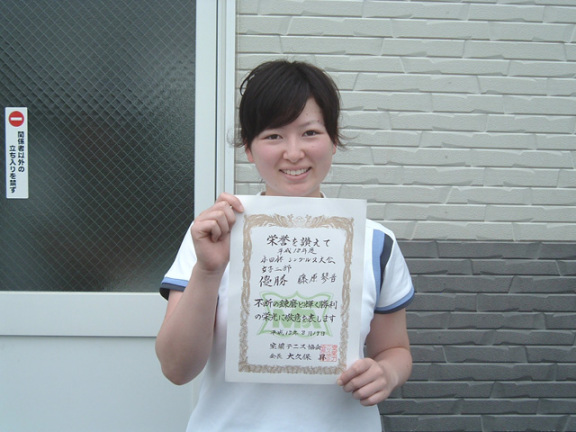 関係者以外の
立ち入りを禁ず
栄誉を讃えて
平成18年度
シングルス大会
優勝 藤原
不断の錬磨と輝く勝利
の栄光に敬意を表します
テニス協会
会長 大久保